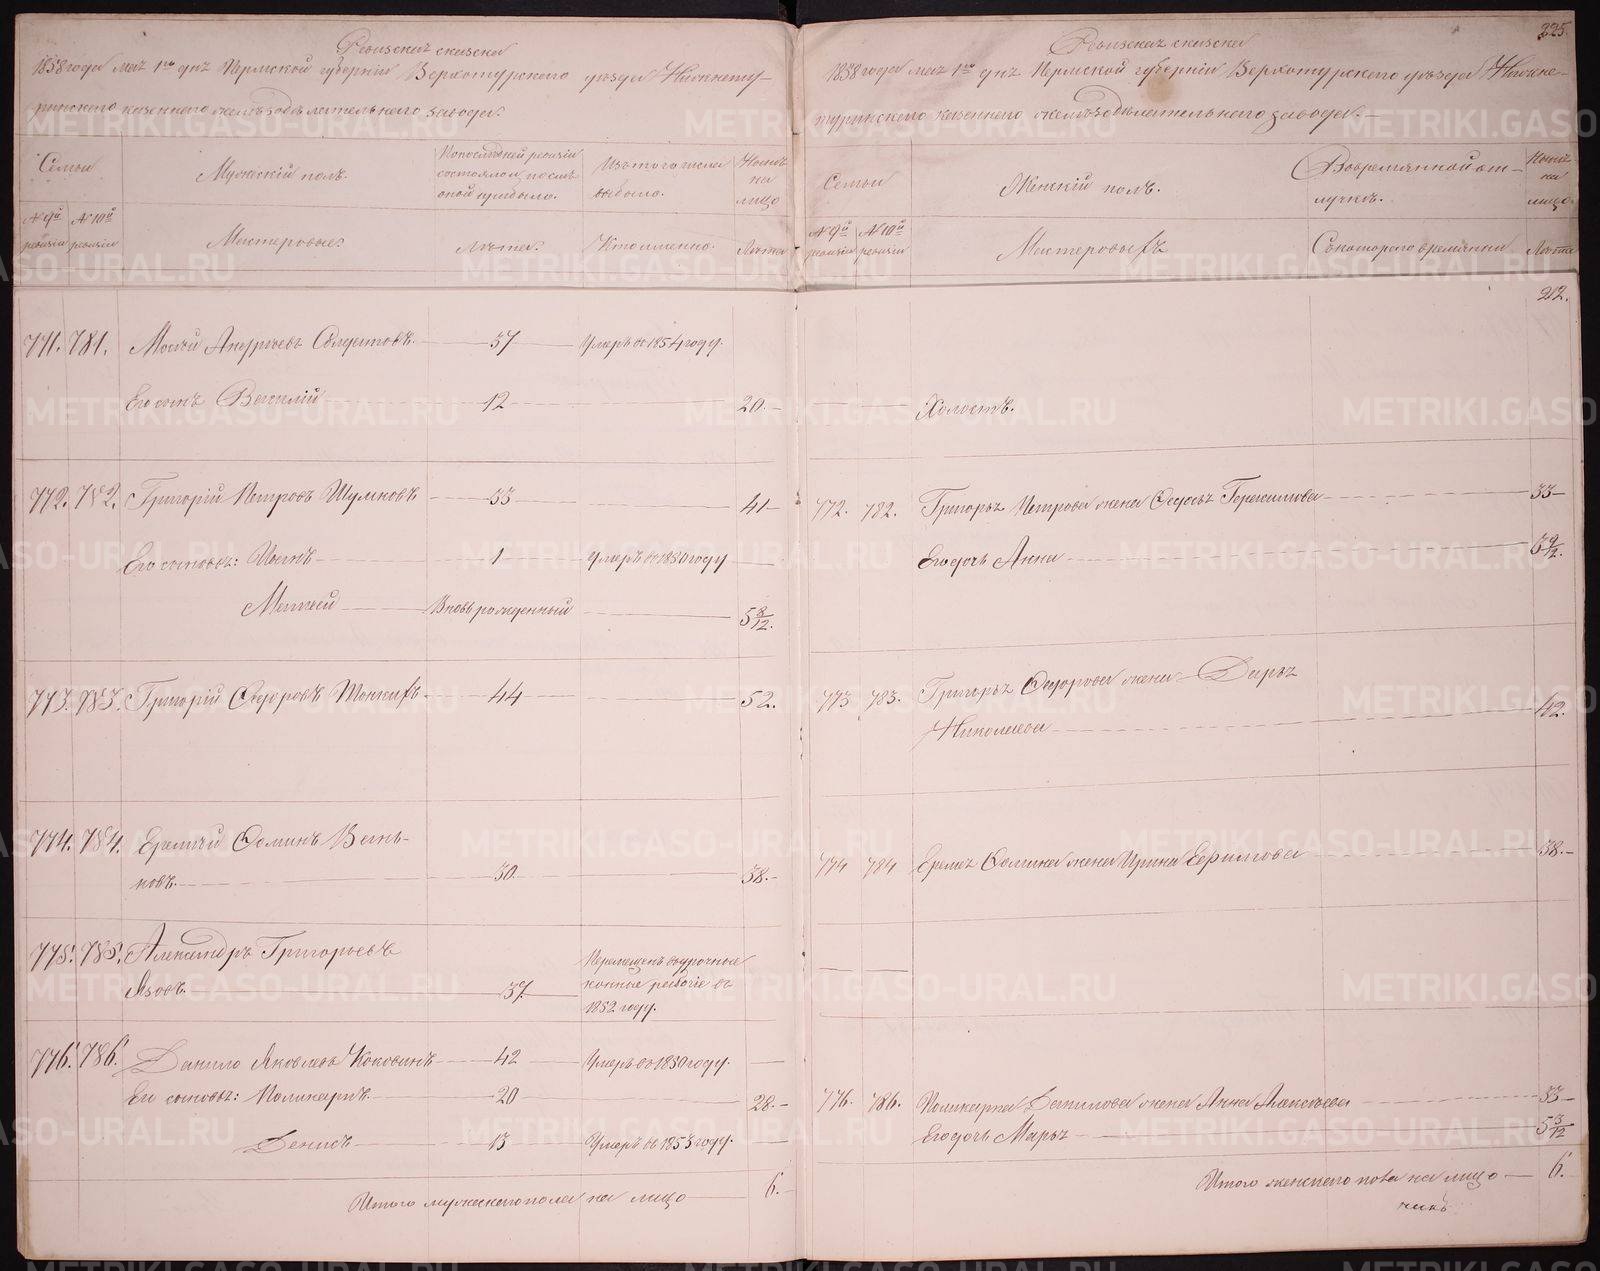 Ревизская сказка
1858 года мая 1го дня Пермской губерніи Верхотурского уѣзда Нижнету-
ринского казеннаго желѣзодѣлательнаго завода.
Семьи
Мужескій полъ.
По последней ревизіи состояло и послѣ оной прибыло.
Изъ того числа выбыло.
Нынѣ на лицо
№ 9й ревизіи
№ 10й ревизіи
Мастеровые.
Лѣта.
Кто именно.
Лѣта
771. 781. Андреевъ Солдатовъ. 37 Умеръ въ 1854 году.
Его сынъ Василій 12 20.
772. 782. Григорій Петровъ Шумковъ 33 41
Его сыновья: 1 Умеръ въ 1850 году
Матвей Вновь рожденный 5 8/12.
773. 783. Григорій Федоровъ 44 52.
774. 784. Еремѣй Фоминъ Вать-
ковъ. 30. 38.
775. 785. Александръ Григорьевъ
Язовъ. 37. Перемещенъ въ урочные
конные рабочіе въ
1852 году.
776. 786. Данило Яковлевъ Коковинъ 42 Умеръ въ 1850 году.
Его сыновья: Поликарпъ. 20 28.
Денисъ 13 Умеръ въ 1853 году.
Итого мужескаго пола на лицо 6.
225.
Ревизская сказка
1858 года мая 1го дня Пермской губерніи Верхотурского уѣзда Нижне-
туринского казеннаго желѣзодѣлательнаго завода.
Семьи
Женскій полъ.
Во временной от-
лучкѣ.
Нынѣ на лицо
№ 9й ревизіи
№ 10й ревизіи
Мастеровыхъ
Съ котораго времяни
Лѣта
212.
Холостъ.
772. 782. Григорья Петрова жена Федосья Герасимова 33
Его дочь Анна 3 9/12.
773 783. Григорья Федорова жена Дарья
Николаева 42.
774 784 Еремея Фомина жена Ирина Ефимова 38.
776. 786. Поликарпа Данилова жена Анна Алексѣева 33
Его дочь Марья 5 3/12
Итого женскаго пола на лицо 6.
METRIKI.GASO-URAL.RU